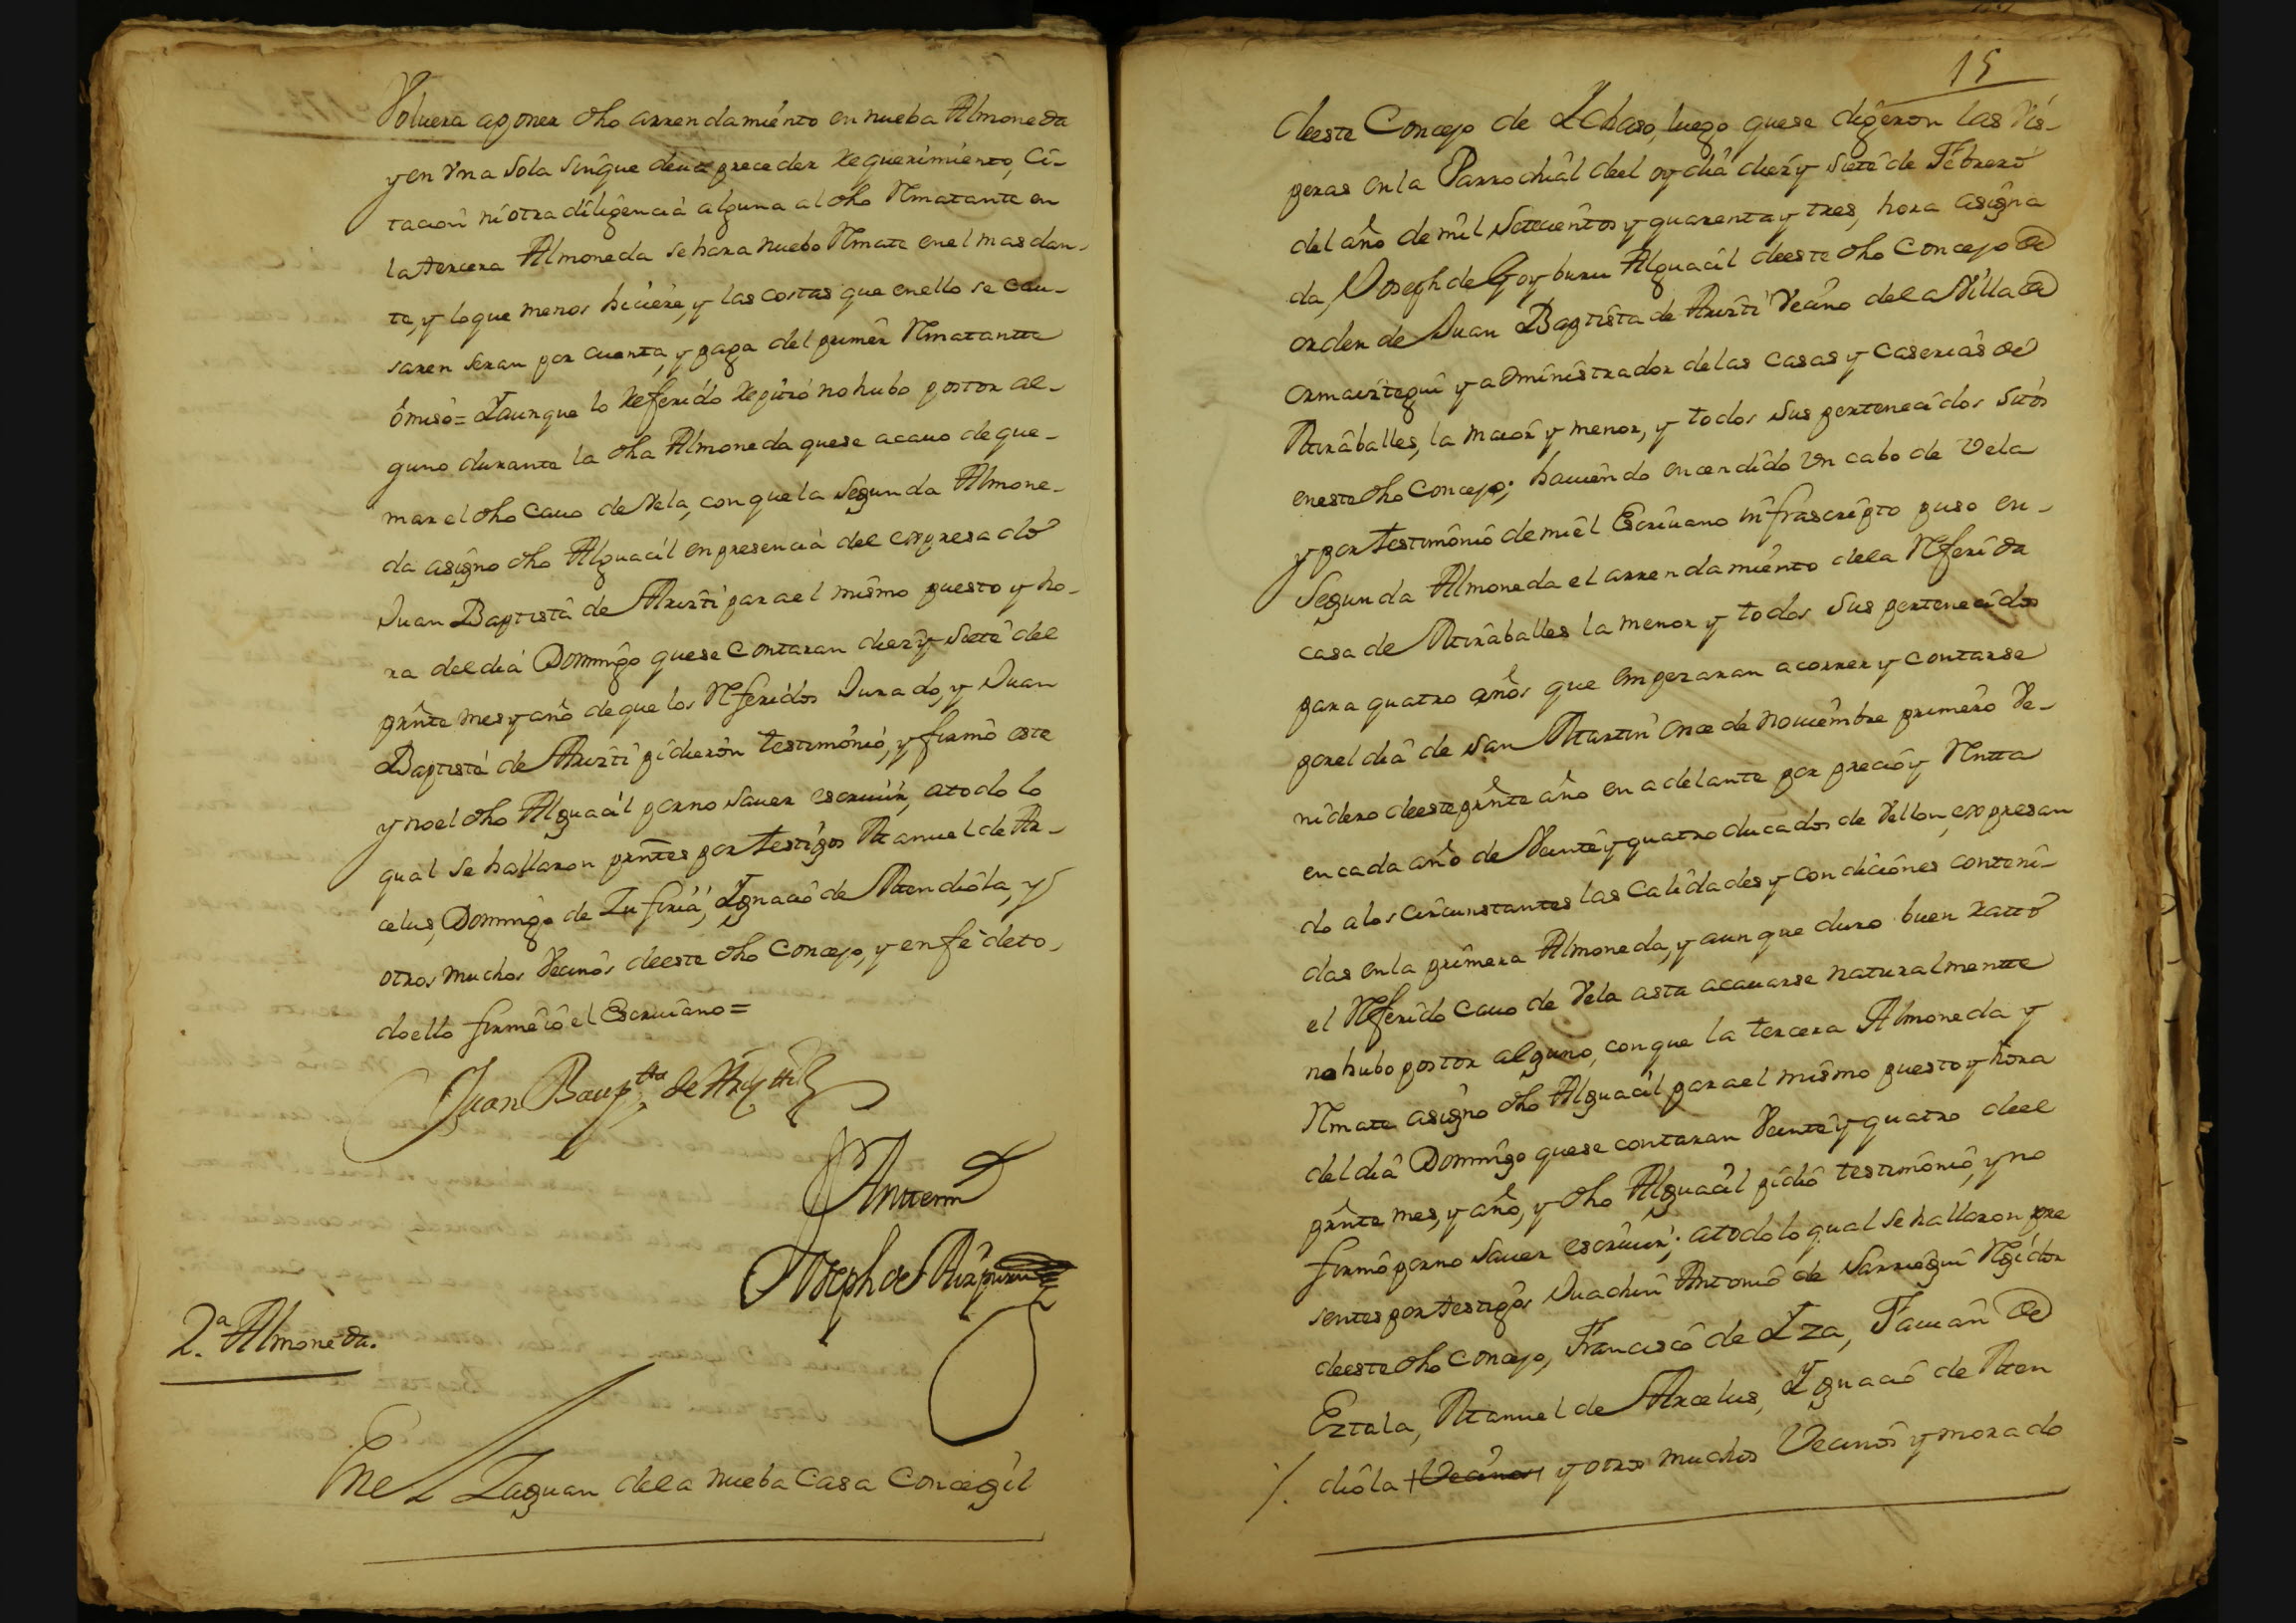 Voluera aponer dho arrendamiento en nueba Almoneda
y en Vna sola sinque deua preceder Requerimiento, Ci-
tacion ni otra diligencia alguna al dho Rmatante en
la tercera Almoneda se hara nuebo Rmate en el mas dan-
te, y lo que menos hiciere, y las costas que en ello se cau-
saren seran por cuenta, y paga del primer Rmatantte
omiso= Y aunque lo Referido Repitió no hubo postor al-
guno durante la dha Almoneda quese acauo de que-
mar el dho Cauo de Vela, con que la Segunda Almone-
da asigno dho Alguacil en presencia del expresado
Juan Baptista de Aruiti para el mismo puesto y ho-
ra del dia Domingo quese Contaran diez y siete del
prnte mes y año de que los Rferidos Jurado, y Juan
Baptista de Aruiti pidieron testimonio, y firmó este
y no el dho Alguacil por no Sauer escriuir, atodo lo
qual se hallaron prntes por testigos Manuel de Ar-
celus, Domingo de Zufiria, Ygnacio de Mendiola, y
otros muchos Vecinos deeste dho Concejo, y en fe de to-
do ello firme io el Escriuano=
Juan Baup.tta de
Anttemi
Joseph de
2.a Almoneda.
En el Zaguan de la nueba Casa Concegil
15
deeste Concejo de Ychaso, luego quese digeron las Vis-
peras en la Parrochial deel oy dia diez y siete de Febrero
del año de mil Settecientos y quarenta y tres, hora asigna
da, Joseph de Goyburu Alguacil deeste dho Concejo de
orden de Juan Baptista de Aruiti Vecino de la Villa de
Ormaiztegui y administrador de las Casas y Caserias de
Miraballes, la maior y menor, y todos Sus pertenecidos Sitos
en este dho Concejo; hauiendo encendido Vn cabo de Vela
y por testimonio de mi el Escriuano infrascripto puso en
Segunda Almoneda el arrendamiento dela Rferida
casa de Miraballes la menor y todos Sus pertenecidos
para quatro años que Empezaran a correr y contarse
por el dia de San Martin Once de Nouiembre primero Ve-
nidero deeste prnte año en adelante por precio y Rntta
en cada año de Veinte y quatro ducados de Vellon, expresan
do a los circunstantes las Calidades y Condiciones conteni-
das en la primera Almoneda, y aunque duro buen ratto
el Rferido Cauo de Vela asta acauarse naturalmentte
no hubo postor alguno, con que la tercera Almoneda y
Rmate asigno dho Alguacil para el mismo puesto y hora
del dia Domingo quese contaran Veinte y quatro deel
prnte mes, y año, y dho Alguacil pidió testimonio, y no
firmó por no Sauer escriuir; atodo lo qual se hallaron pre
sentes por testigos Juachin Antonio de Sarriegui Rgidor
deeste dho Concejo, Francisco de Yza, Fauian de
Eztala, Manuel de Arcelus, Ygnacio de Men
diola Vecinos y otros muchos Vecinos y morado